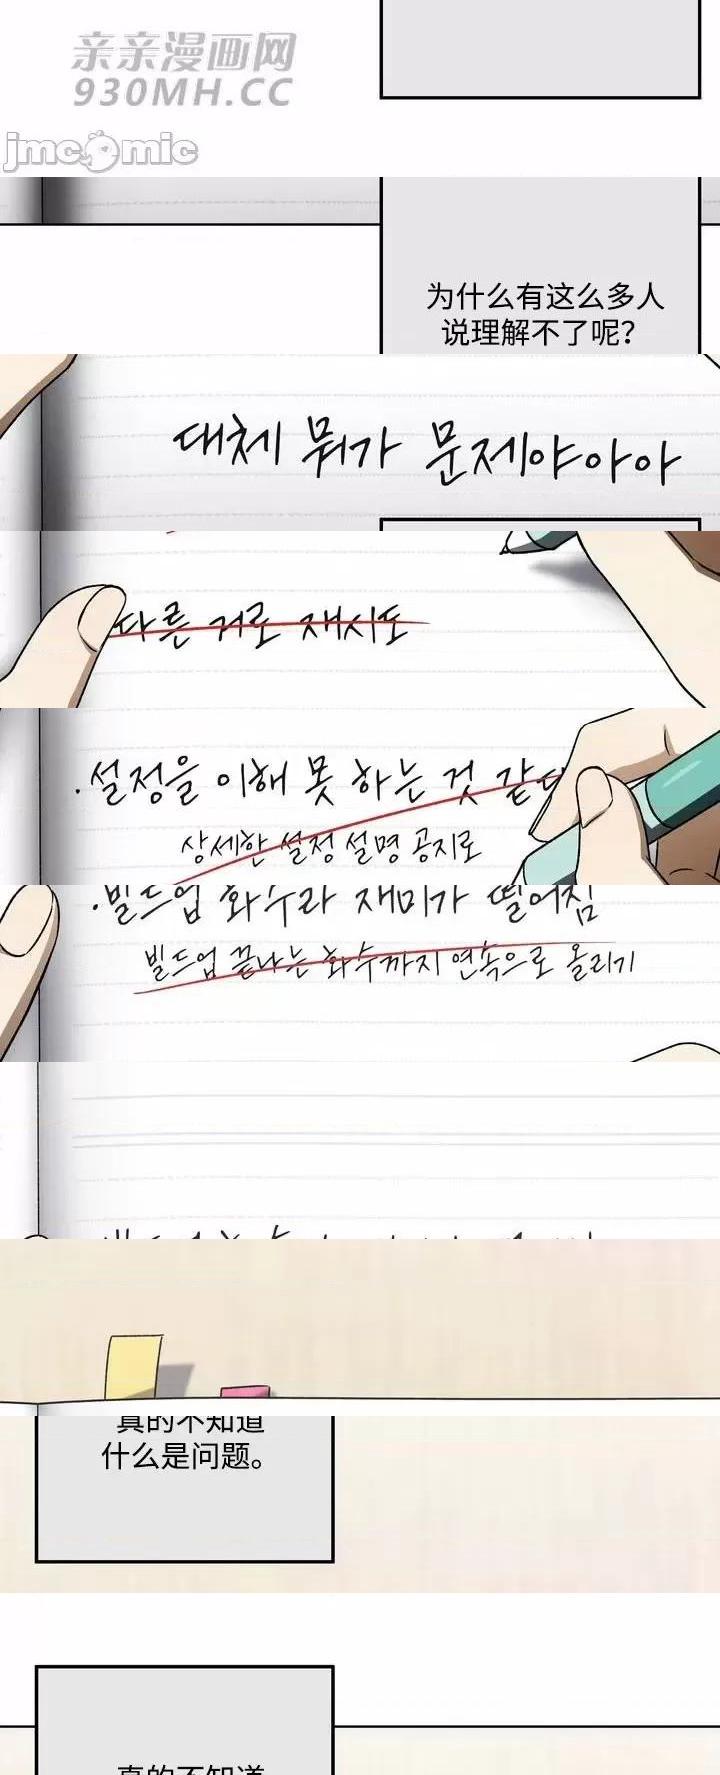 亲亲漫画网
930MH.CC
jmcomic
为什么有这么多人
说理解不了呢?
대체 뭐가 문제야아아
다른 거로 재시도
·설정을 이해 못 하는 것 같다
상세한 설정 설명 공지로
·빌드업 화수라 재미가 떨어짐
빌드업 끝나는 화수까지 연속으로 올리기
真的不知道
什么是问题。
真的不知道